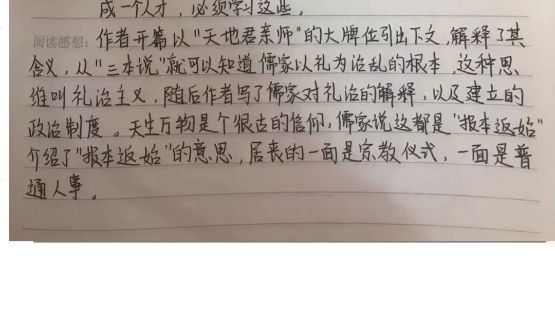 成一个人才，必须学习这些。
阅读感想：作者开篇以"天地君亲师"的大牌位引出下文，解释了其
含义，从"三本说"就可以知道儒家以礼为治乱的根本，这种思
维叫礼治主义，随后作者写了儒家对礼治的解释，以及建立的
政治制度。天生万物是个很古的信仰，儒家说这都是"报本返始"
介绍了"报本返始"的意思，居丧的一面是宗教仪式，一面是普
通人事。